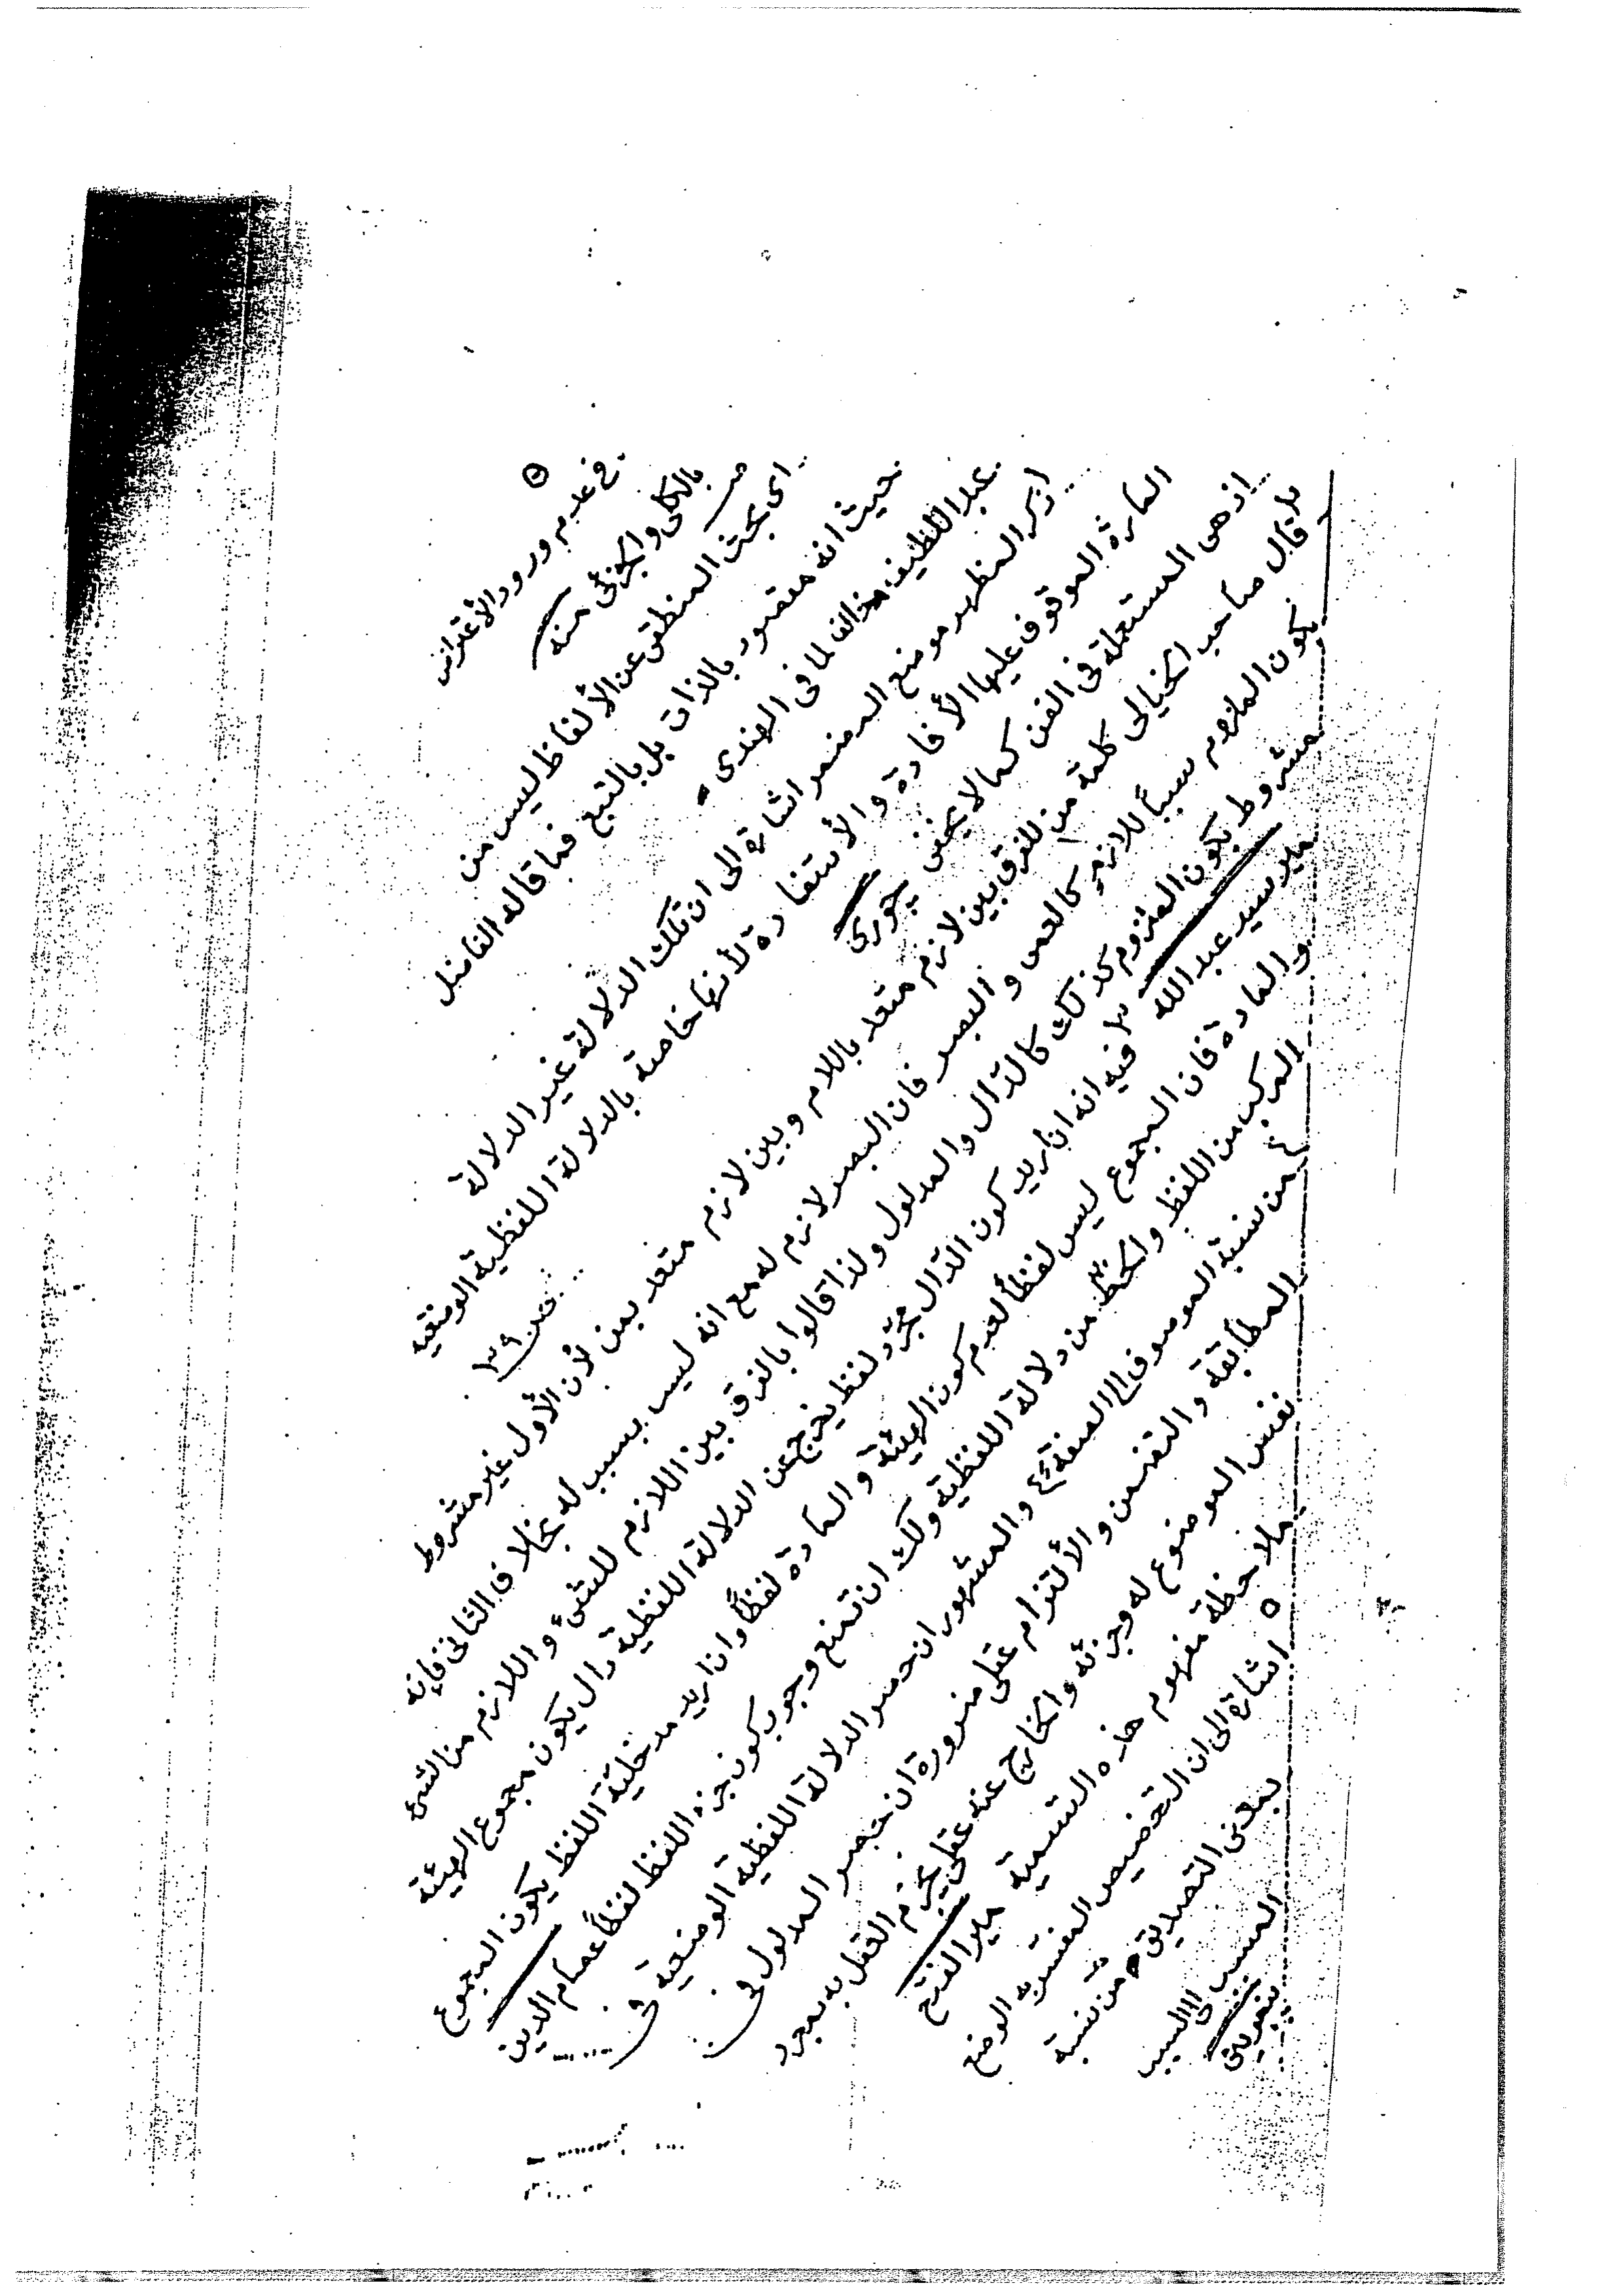 فى عدم ورود الأعتراض
بالكلى والجزئى منه
اى بحث المنطقى عن الألفاظ ليس من
حيث انه مقصور بالذات بل بالتبع فما قاله الفاضل
عبد اللطيف مخالف لما فى الهندى
ابرز المظهر موضع المضمر اشارة الى ان تلك الدلالة غير الدلالة
المارة الموقوف عليها الأفادة والأستفادة لأنها خاصة بالدلالة اللفظية الوضعيه
اذ هى المستعملة فى الفن كما لا يخفى جورى
بل قال صاحب الخيالى كلمة من للفرق بين لازم متعد باللام وبين لازم متعد بمن لأن الأول غير مشروط
بكون الملزوم سبباً للازم كالعمى والبصر فان البصر لازم له مع انه ليس بسبب له بخلاف الثانى فإنه
مشروط بكون الملزوم كذلك كالدّال والمدلول ولذا قالوا بالفرق بين اللازم للشئ واللازم من الشئ
مير سيد عبد الله ٣ فيه انه ان اريد كون الدّال مجرّد لفظ يخرج عن الدلالة اللفظية دال يكون مجموع الهيئة
والمادة فان المجموع ليس لفظاً لعدم كون الهيئة والمادة لفظاً وان اريد مدخلية اللفظ يكون المجموع
المركب من اللفظ والخط من دلالة اللفظية ولك ان تمنع وجوب كون جزء اللفظ لفظاً عصام الدين
من نسبة الموصوف الى الصفة ٤ والمشهور ان حصر الدلالة اللفظية الوضعية فى
المطابقة والتضمن والألتزام عقلى ضرورة ان حصر المدلول فى
نفس الموضوع له وجزئه والخارج عنه عقلى يجزم العقل به بمجرد
ملاحظة مفهوم هذه القسمة مير الفتح
٥ اشارة الى ان التخصيص المعتبر به الوضع
التصديق من نسبة
المسبب الى السبب